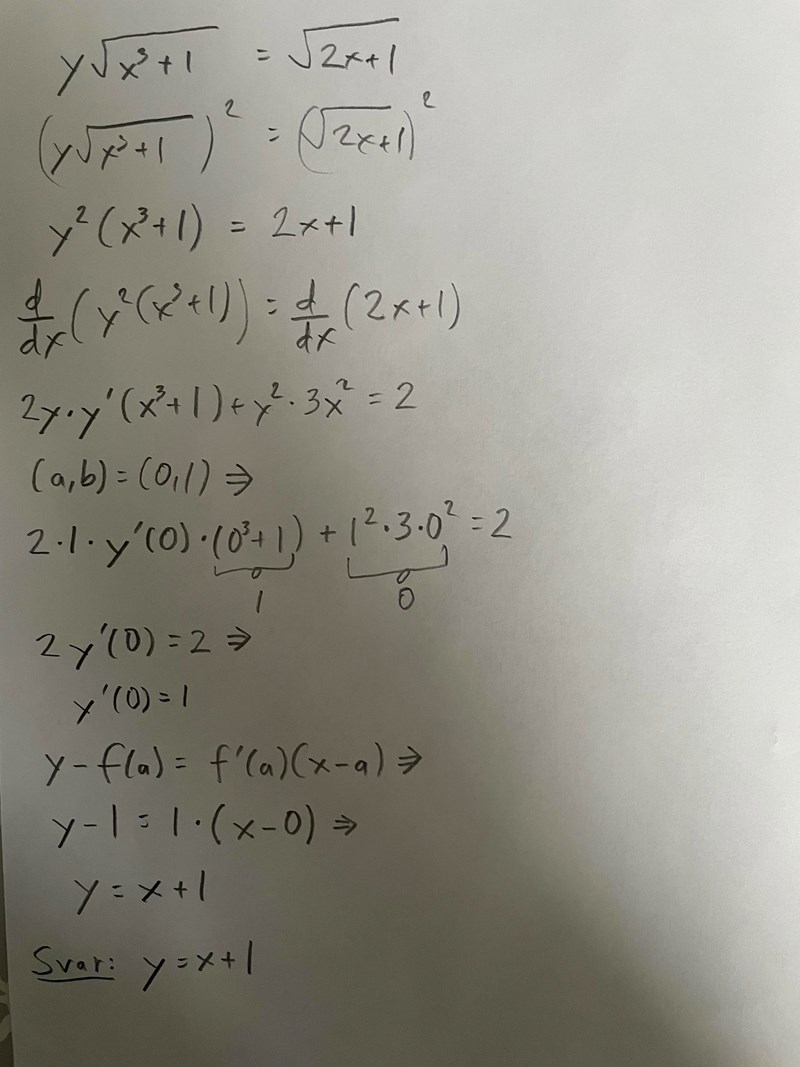 y√(x³+1) = √(2x+1)
(y√(x³+1))² = (√(2x+1))²
y²(x³+1) = 2x+1
d/dx (y²(x³+1)) = d/dx (2x+1)
2y·y'(x³+1)+y²·3x² = 2
(a,b) = (0,1) ⇒
2·1·y'(0)·(0³+1) + 1²·3·0² = 2
1 0
2y'(0) = 2 ⇒
y'(0) = 1
y-f(a) = f'(a)(x-a) ⇒
y-1 = 1·(x-0) ⇒
y = x+1
Svar: y = x+1